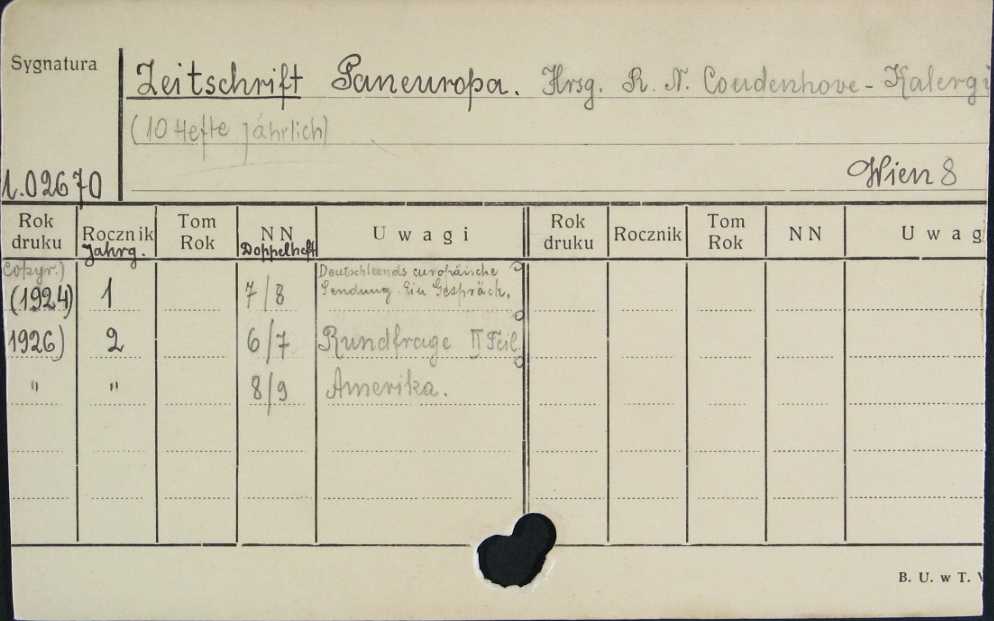 Sygnatura
Zeitschrift Paneuropa. Hrsg. R. N. Coudenhove-Kalergi
(10 Hefte jährlich)
1.02670
Wien 8
Rok druku Rocznik Tom Rok NN Uwagi Rok druku Rocznik Tom Rok NN Uwag
Jahrg. Doppelheft
Copyr.)
(1924) 1 7/8 Deutschlands europäische
Sendung. Ein Gespräch.
1926) 2 6/7 Rundfrage II Teil.
" " 8/9 Amerika.
B. U. w T.